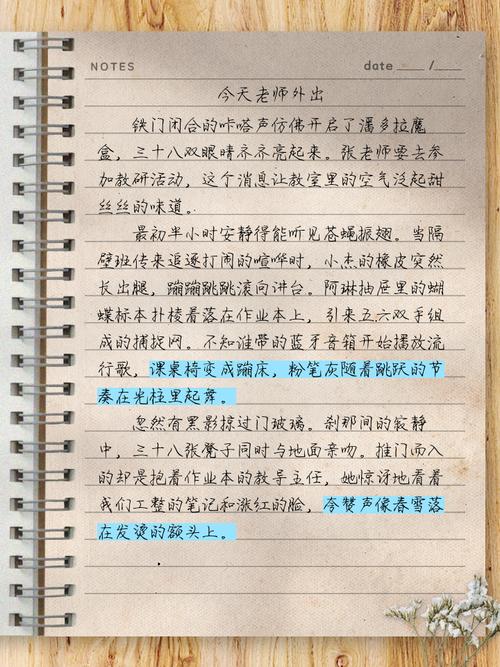 NOTES date ____ /____
今天老师外出
铁门闭合的咔嗒声仿佛开启了潘多拉魔
盒，三十八双眼睛齐齐亮起来。张老师要去参
加教研活动，这个消息让教室里的空气泛起甜
丝丝的味道。
最初半小时安静得能听见苍蝇振翅。当隔
壁班传来追逐打闹的喧哗时，小杰的橡皮突然
长出腿，蹦蹦跳跳滚向讲台。阿琳抽屉里的蝴
蝶标本扑棱着落在作业本上，引来五六双手组
成的捕捉网。不知谁带的蓝牙音箱开始播放流
行歌，课桌椅变成蹦床，粉笔灰随着跳跃的节
奏在光柱里起舞。
忽然有黑影掠过门玻璃。刹那间的寂静
中，三十八张凳子同时与地面亲吻。推门而入
的却是抱着作业本的教导主任，她惊讶地看着
我们工整的笔记和涨红的脸，夸赞声像春雪落
在发烫的额头上。